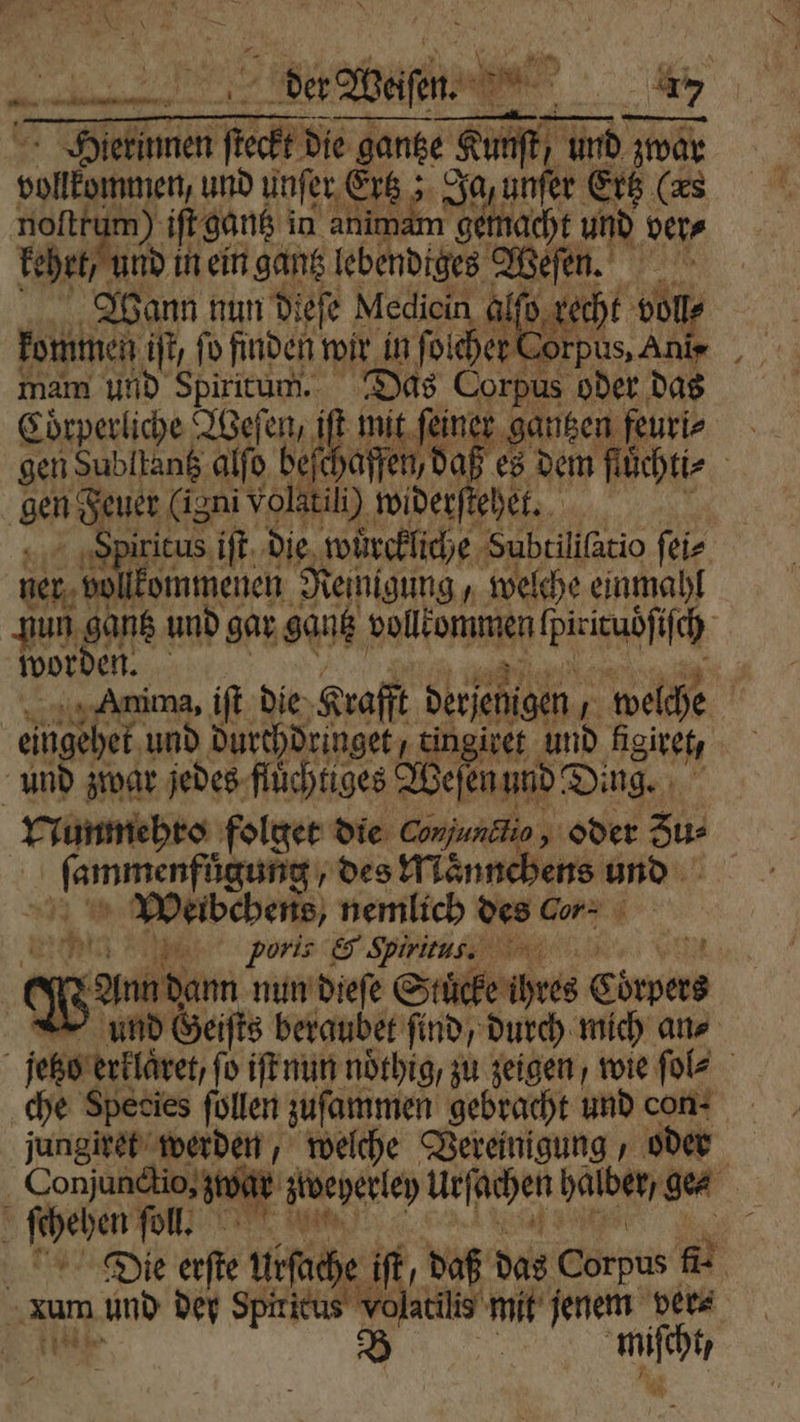 der Weiſen. 17
Hierinnen ſteckt die gantze Kunſt, und zwar
vollkommen, und unſer Ertz; Ja, unſer Ertz (æs
noſtrum) iſt gantz in animam gemacht und ver⸗
kehrt, und in ein gantz lebendiges Weſen.
Wann nun dieſe Medicin alſo recht voll⸗
kommen iſt, ſo finden wir in ſolcher Corpus, Ani-
mam und Spiritum. Das Corpus oder das
Coͤrperliche Weſen, iſt mit ſeiner gantzen feuri⸗
gen Subſtantz alſo beſchaffen, daß es dem fluͤchti⸗
gen Feuer (igni volatili) widerſtehet.
Spiritus iſt die wuͤrckliche Subtiliſatio ſei⸗
ner vollkommenen Reinigung, welche einmahl
nun gantz und gar gantz vollkommen ſpirituoͤſiſch
worden.
Anima, iſt die Krafft derjenigen, welche
eingehet und durchdringet, tingiret und figiret,
und zwar jedes fluͤchtiges Weſen und Ding.
Nunmehro folget die Conjunctio, oder Zu⸗
ſammenfuͤgung, des Maͤnnchens und
Weibchens, nemlich des Cor-
poris & Spiritus.
WAnn dann nun dieſe Stuͤcke ihres Coͤrpers
und Geiſts beraubet ſind, durch mich an⸗
jetzo erklaͤret, ſo iſt nun noͤthig, zu zeigen, wie ſol⸗
che Species ſollen zuſammen gebracht und con-
jungiret werden, welche Vereinigung, oder
Conjunctio, zwar zweyerley Urſachen halber, ge⸗
ſchehen ſoll.
Die erſte Urſache iſt, daß das Corpus fi-
xum und der Spiritus volatilis mit jenem ver⸗
B miſcht,